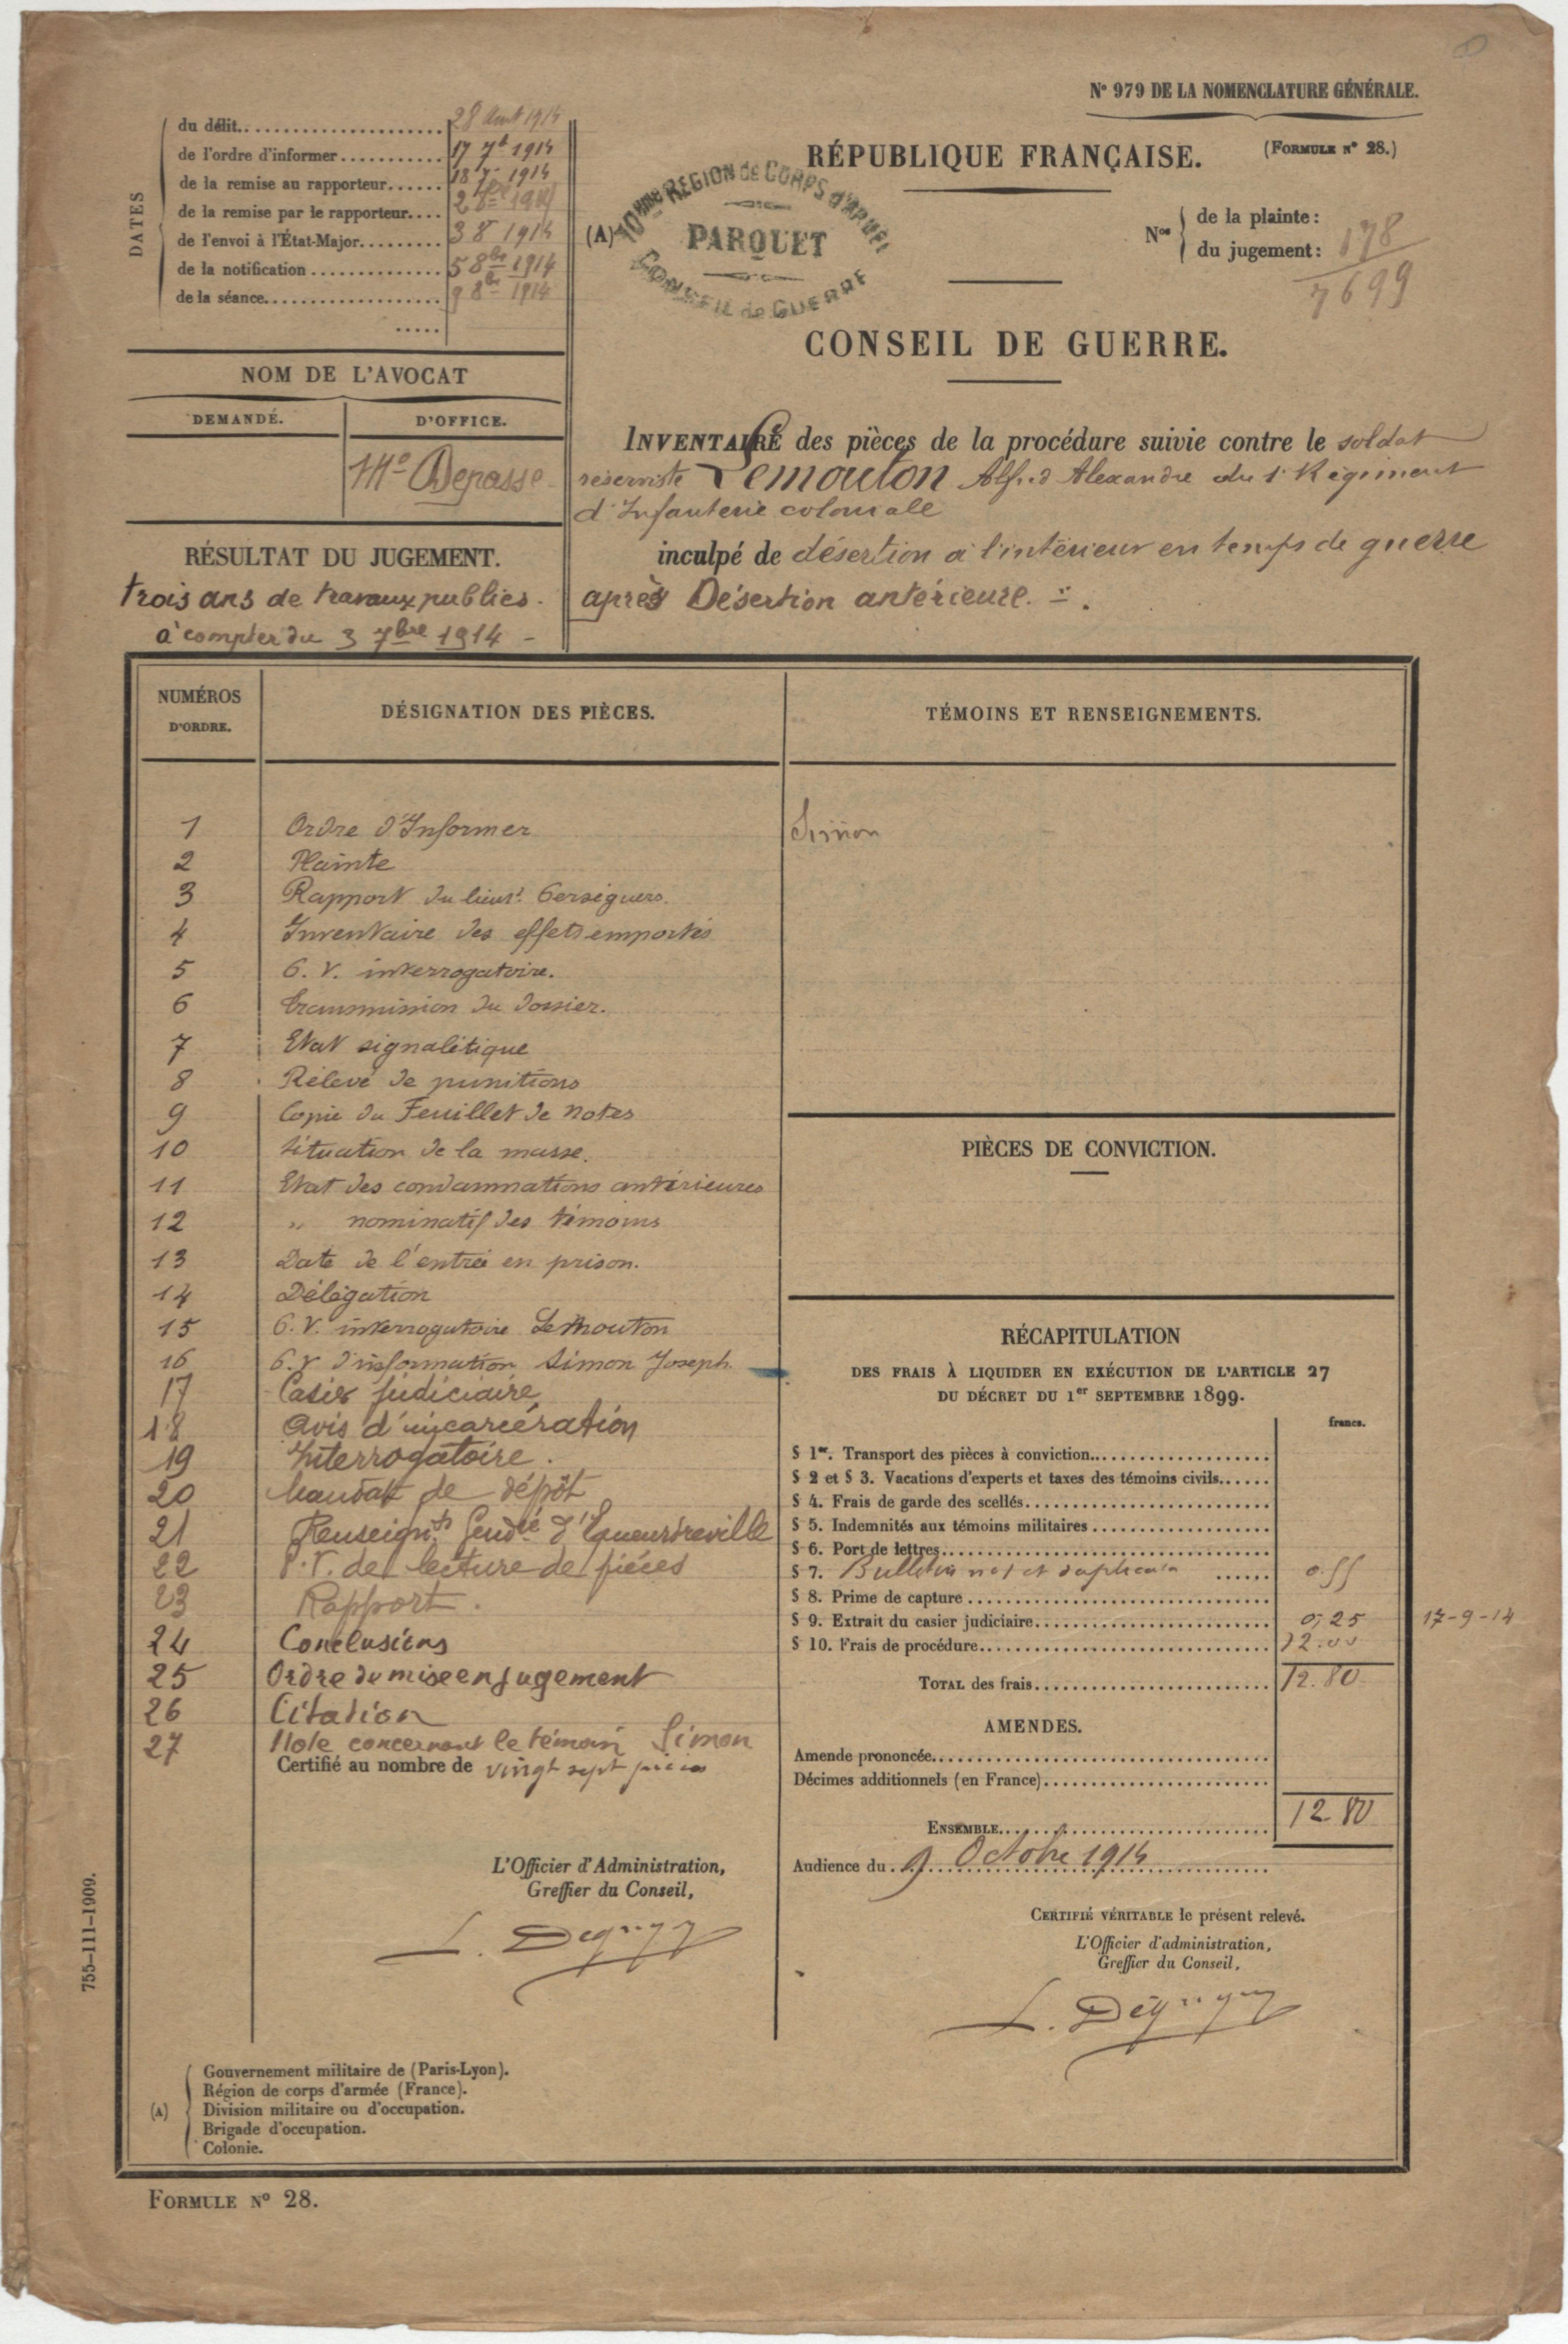 N° 979 DE LA NOMENCLATURE GÉNÉRALE.
(FORMULE N° 28.)
DATES
du délit 28 Aout 1914
de l'ordre d'informer 17 7b 1914
de la remise au rapporteur 18 7 1914
de la remise par le rapporteur 2 8bre 1914
de l'envoi à l'État-Major 3 8 1914
de la notification 5 8bre 1914
de la séance 9 8bre 1914
NOM DE L'AVOCAT
DEMANDÉ.
D'OFFICE.
Me Depasse
RÉSULTAT DU JUGEMENT.
trois ans de travaux publics.
à compter du 3 7bre 1914 -
RÉPUBLIQUE FRANÇAISE.
(A)
10ème REGION de CORPS d'ARMÉE
PARQUET
CONSEIL de GUERRE
Nos
de la plainte :
du jugement : 178
7699
CONSEIL DE GUERRE.
INVENTAIRE des pièces de la procédure suivie contre le soldat
réserviste Lemouton Alfred Alexandre du 1r Régiment
d'Infanterie coloniale
inculpé de désertion à l'intérieur en temps de guerre
après Désertion antérieure. -.
NUMÉROS
D'ORDRE.
DÉSIGNATION DES PIÈCES.
TÉMOINS ET RENSEIGNEMENTS.
1 Ordre d'Informer
Simon
2 Plainte
3 Rapport du lieut.
4 Inventaire des effets emportés
5 P. V. interrogatoire.
6 Transmission du dossier.
7 Etat signalétique
8 Relevé de punitions
9 Copie du Feuillet de notes
10 Situation de la masse.
11 Etat des condamnations antérieures
12 " nominatif des témoins
13 Date de l'entrée en prison.
14 Délégation
15 P. V. interrogatoire Lemouton
16 P. V d'information Simon Joseph.
17 Casier judiciaire
18 Avis d'incarcération
19 Interrogatoire.
20 Mandat de dépôt
21 Renseignts Gendie d'Equeurdreville
22 P. V. de lecture de pièces
23 Rapport.
24 Conclusions
25 Ordre de mise en jugement
26 Citation
27 Note concernant le témoin Simon
Certifié au nombre de vingt sept pièces
L'Officier d'Administration,
Greffier du Conseil,
PIÈCES DE CONVICTION.
RÉCAPITULATION
DES FRAIS À LIQUIDER EN EXÉCUTION DE L'ARTICLE 27
DU DÉCRET DU 1er SEPTEMBRE 1899.
francs.
§ 1er. Transport des pièces à conviction
§ 2 et § 3. Vacations d'experts et taxes des témoins civils
§ 4. Frais de garde des scellés
§ 5. Indemnités aux témoins militaires
§ 6. Port de lettres
§ 7. Bulletin no 1 et duplicata 0.55
§ 8. Prime de capture
§ 9. Extrait du casier judiciaire 0,25 17-9-14
§ 10. Frais de procédure 12.00
TOTAL des frais 12.80
AMENDES.
Amende prononcée
Décimes additionnels (en France)
ENSEMBLE 12 80
Audience du 9 Octobre 1914
CERTIFIÉ VÉRITABLE le présent relevé.
L'Officier d'administration,
Greffier du Conseil,
755-111-1909.
(A)
Gouvernement militaire de (Paris-Lyon).
Région de corps d'armée (France).
Division militaire ou d'occupation.
Brigade d'occupation.
Colonie.
FORMULE N° 28.